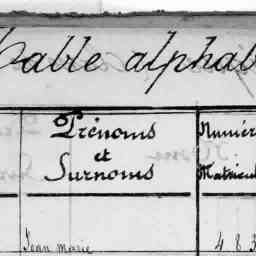 Table alphab
Prénoms
et
Surnoms
Numér
Matricul
Jean Marie
4 8 3